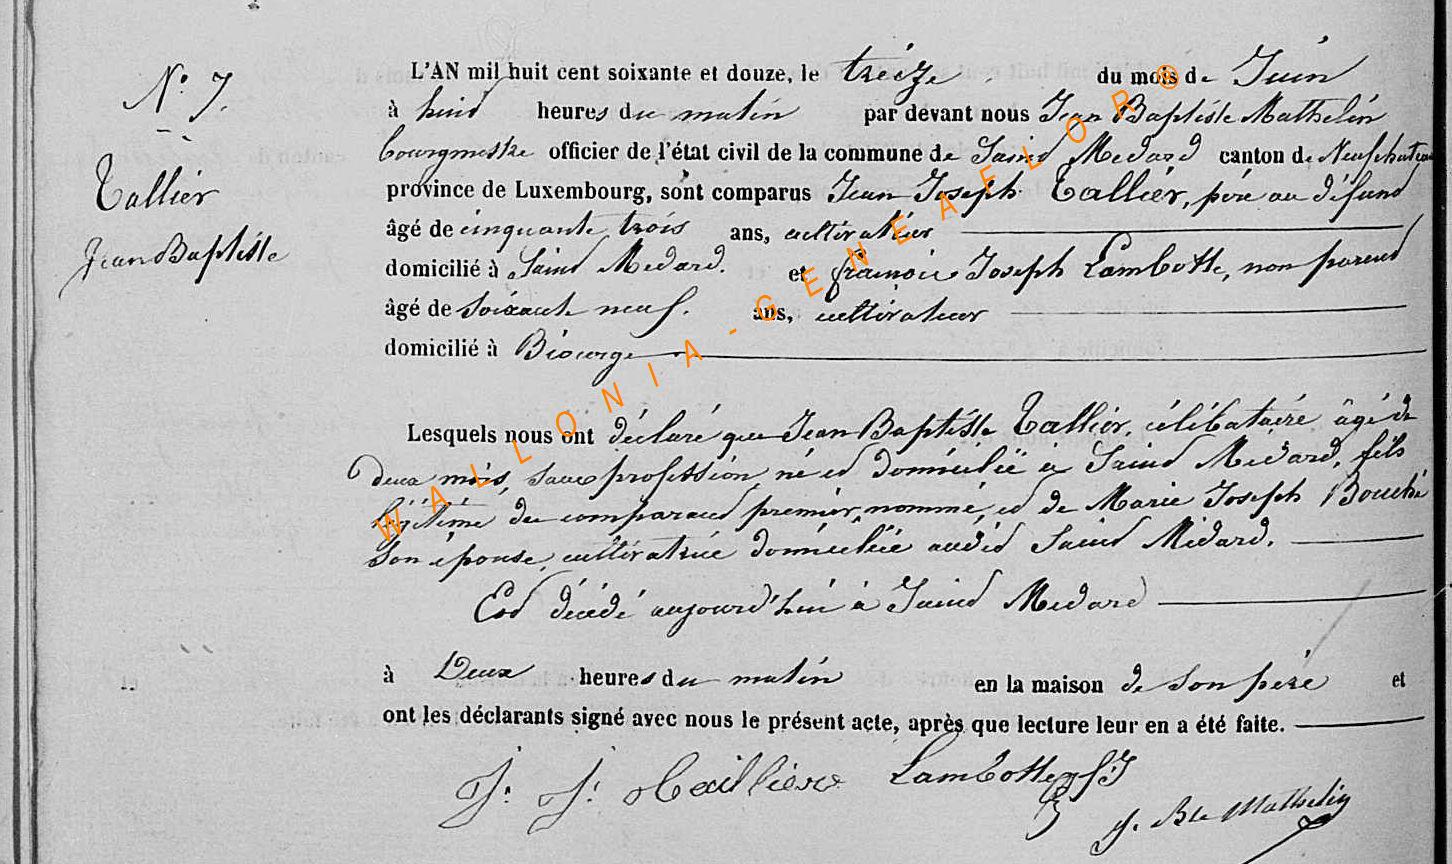 N° 7.
Tallier
Jean Baptiste
L'AN mil huit cent soixante et douze, le treize du mois de Juin
à huit heures du matin par devant nous Jean Baptiste Mathelin
bourgmestre officier de l'état civil de la commune de Saint Medard canton de Neufchateau
province de Luxembourg, sont comparus Jean Joseph Tallier, père au défunt
âgé de cinquante trois ans, cultivateur
domicilié à Saint Medard. et françois Joseph Lambotte, non parent
âgé de soixante neuf. ans, cultivateur
domicilié à Biourge
Lesquels nous ont déclaré que Jean Baptiste Tallier, célibataire âgé de
deux mois, sans profession, né et domicilié à Saint Médard, fils
légitime du comparant premier nommé, et de Marie Joseph Bouché
son épouse, cultivatrice domiciliée audit Saint Médard.
Est décédé aujourd'hui à Saint Medard
à Deux heures du matin en la maison de son père et
ont les déclarants signé avec nous le présent acte, après que lecture leur en a été faite.
J. J. Taillière Lambotte f J
J. Bte Mathelin
WALLONIA-GENEAFLOR®